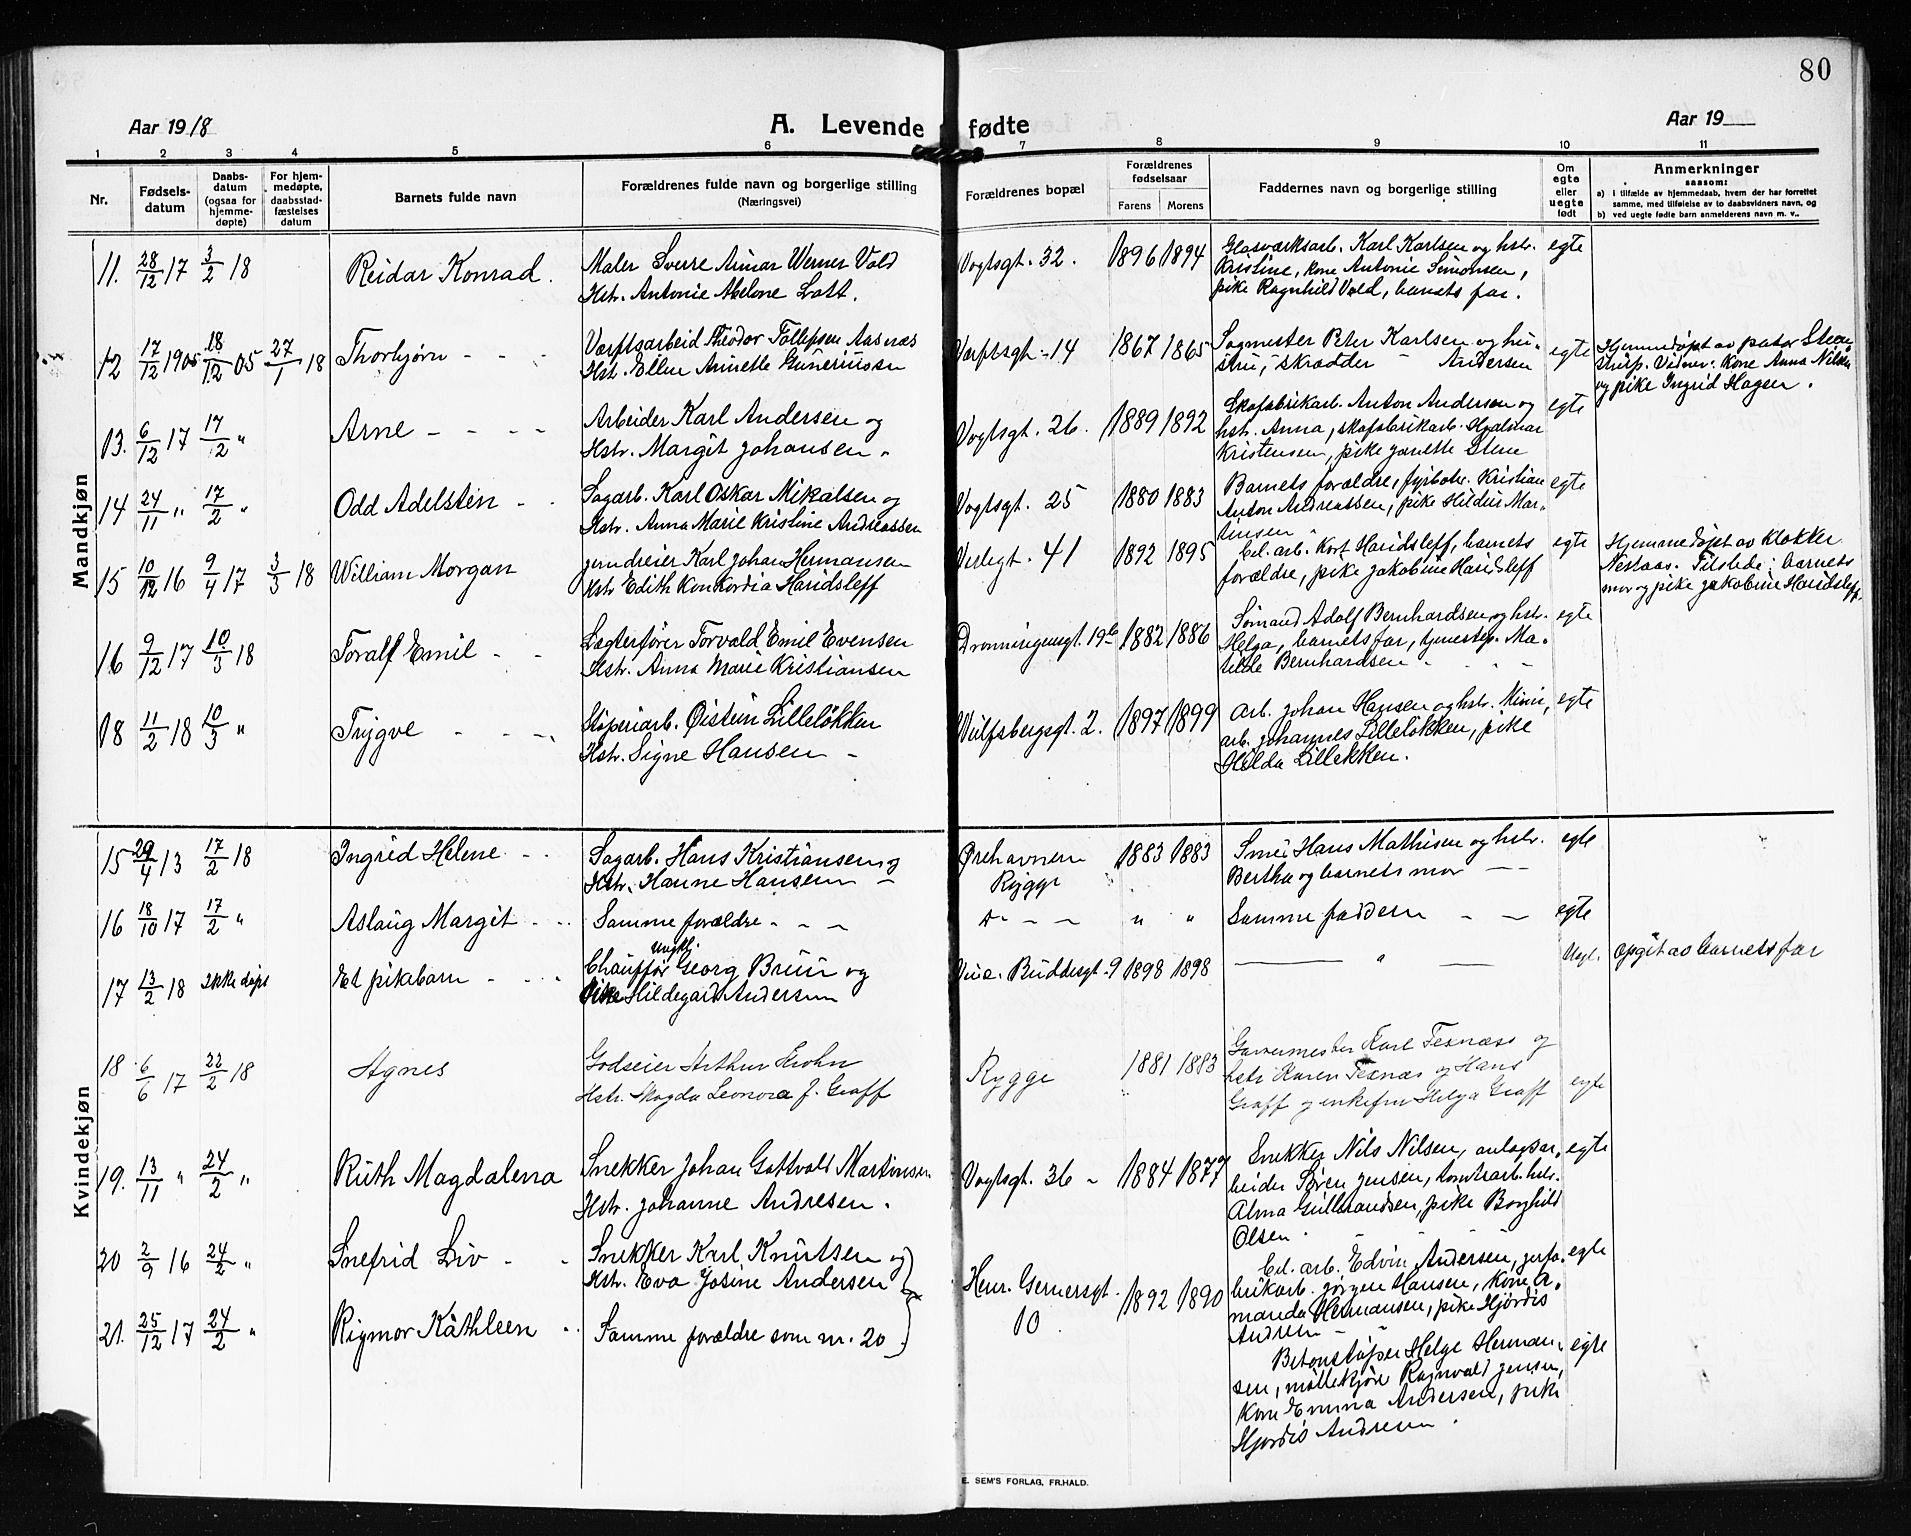 80
Aar 1918
A. Levende fødte
Aar 19
1 2 3 4 5 6 7 8 9 10 11
Nr.
Fødsels-
datum
Daabs-
datum
(ogsaa for
hjemme-
døpte)
For hjem-
medøpte,
daabsstad-
fæstelses
datum
Barnets fulde navn
Forældrenes fulde navn og borgerlige stilling
(Næringsvei)
Forældrenes bopæl
Forældrenes
fødselsaar
Farens Morens
Faddernes navn og borgerlige stilling
Om
egte
eller
uegte
født
Anmerkninger
saasom:
a) i tilfælde av hjemmedaab, hvem der har forrettet
samme, med tilføielse av to daabsvidners navn, og
b) ved uegte fødte barn anmelderens navn m. v..
Mandkjøn
11. 28/12 17 3/2 18 Reidar Konrad. Maler Sverre Werner Vold Vogtsgt. 32. 1896 1894 Glasværksarb. Karl Karlsen og hstr. egte
Hstr. Antonie Abelone Lott. Kristine, kone Antonie Simonsen,
pike Ragnhild Vold, barnets far.
12 17/12 1905 18/12 05 27/1 18 Thorbjørn - - - Værftsarbeid Theodor Tollefsen Aasnæs Værftsgt. 14 1867 1865 Sagmester Peter Karlsen og hu- egte Hjemmedøpt av pastor Steen
Hstr. Ellen Annette Guneriussen stru, skrædder - Andersen strup. Vidner: Kone Anna Nilsen
og pike Ingrid Hagen.
13. 6/12 17 17/2 " Arne - - - - Arbeider Karl Andersen og Vogtsgt. 26. 1889 1892 Skofabrikarb. Anton Andersen og egte
Hstr. Margit Johansen. hstr. Anna, skofabrikarb. Hjalmar
Kristensen, pike Janette Steen
14 24/11 " 17/2 " Odd Adelsten - - Sagarb. Karl Oskar Mikalsen og Vogtsgt. 25 1880 1883 Barnets forældre, fyrbøter Kristian egte
Hstr. Anna Marie Kristine Andreassen Anton Andreassen, pike Hildur Mar-
tinsen
15 10/12 16 9/4 17 3/3 18 William Morgan Jerndreier Karl Johan Hermansen Verlegt. 41 1892 1895 Cel. arb. Kort Haridsleff, barnets egte Hjemmedøpt av klokker
Hstr Edith Konkordia Haridsleff forældre, pike Jakobine Haridsleff Nesaas. Tilstede: barnets
mor og pike Jakobine Haridsleff.
16 9/12 17 10/3 18 Toralf Emil - - Lægterfører Torvald Emil Evensen Dronningensgt. 19b 1882 1886 Sømand Adolf Bernhardsen og hstr. egte
Hstr. Anna Marie Kristiansen Helga, barnets far, tjenestep. Ma-
tilde Bernhardsen - - -
18 11/2 18 10/3 " Trygve - - - Støperiarb. Øistein Lilleløkken Wulfsbergsgt. 2. 1897 1899 Arb. Johan Hansen og hstr. Mimi, egte
Hstr. Signe Hansen - arb. Johannes Lilleløkken, pike
Hilda Lillekken.
Kvindekjøn
15 29/4 13 17/2 18 Ingrid Helene - - Sagarb. Hans Kristiansen og Ørehavnen 1883 1883 Smed Hans Mathisen og hstr. egte
Hstr. Hanne Hansen - Rygge Bertha og barnets mor - -
16 18/10 17 17/2 " Aslaug Margit - - Samme forældre - - - D- - - " " Samme faddere - - egte
17 13/2 18 Ikke døpt Et pikebarn - - - ungk. Chauffør Georg Bruun og Buddesgt. 9 1898 1898 - " - Uegt. Opgit av barnets far
Pike Hildegard Andersen
18 6/6 17 22/2 18 Agnes Godseier Arthur Krohn Rygge 1881 1883 Garvermester Karl Texnæss og
Hstr. Magda Leonora J. Graff hstr Karen Texnæs og Hans egte
Graff og enkefru Helga Graff
19. 13/11 " 24/2 " Ruth Magdalena Snekker Johan Gottvald Martinsen Vogtsgt. 36 - 1884 1877 Snekker Nils Nilsen, anlægsar- egte
Hstr. Johanne Andresen. beider Søren Jensen, kontrarb. hstr.
Alma Gulbrandsen, pike Borghild
Olsen.
20 2/9 16 24/2 " Snefrid Liv - - Snekker Karl Knutsen og Henr. Gernersgt. 10 1892 1890 Cel. arb. Edvin Andersen, jerfa- egte
Hstr. Eva Josine Andersen brikarb. Jørgen Hansen, kone A-
manda Hermansen, pike Hjørdis
Andresen -
21. 25/12 17 24/2 " Rigmor Kathleen - Samme forældre som nr. 20. Betonstøper Helge Herman- egte
sen, møllekjøre Ragnvald Jensen,
kone Emma Andersen, pike
Hjørdis Andresen.
E. SEM'S FORLAG, FR.HALD.